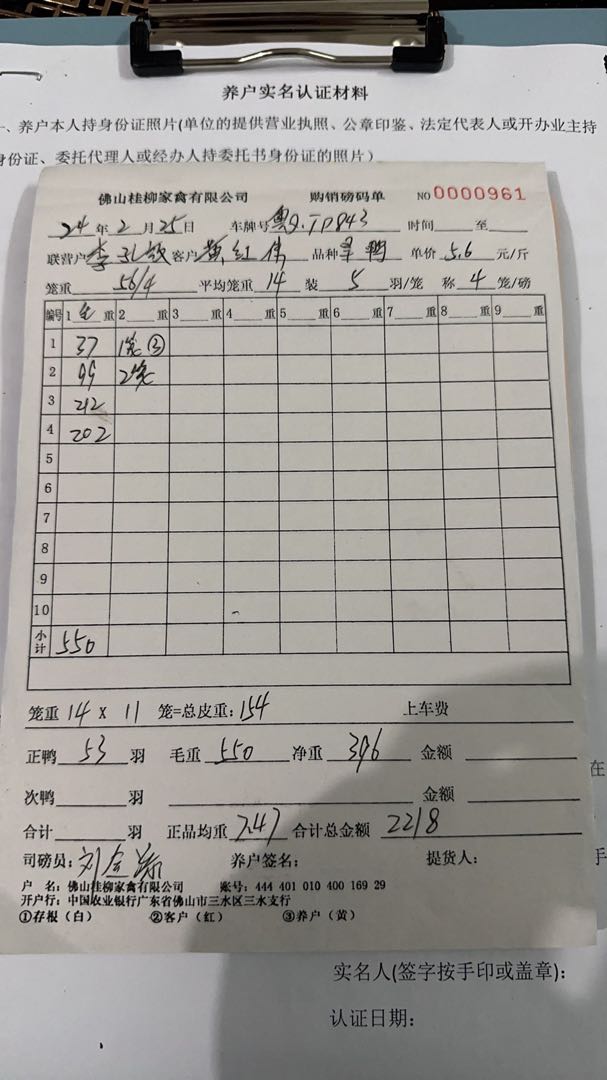 养户实名认证材料
一、养户本人持身份证照片(单位的提供营业执照、公章印鉴、法定代表人或开办业主持
身份证、委托代理人或经办人持委托书身份证的照片)
佛山桂柳家禽有限公司 购销磅码单 NO 0000961
24年2月25日 车牌号粤Q.TP843 时间 至
联营户李 客户黄红伟 品种 鸭 单价5.6元/斤
笼重56/4 平均笼重14 装5羽/笼 称4笼/磅
编号 1毛重 2重 3重 4重 5重 6重 7重 8重 9重
1 37 1笼③
2 99 2笼
3 212
4 202
5
6
7
8
9
10
小计 550
笼重14 X 11笼=总皮重:154 上车费
正鸭53羽 毛重550 净重396 金额
次鸭 羽 金额
合计 羽 正品均重7.47 合计总金额2218
司磅员:刘 养户签名: 提货人:
户 名:佛山桂柳家禽有限公司 账号:444 401 010 400 169 29
开户行:中国农业银行广东省佛山市三水区三水支行
①存根(白) ②客户(红) ③养户(黄)
在
手
实名人(签字按手印或盖章):
认证日期: